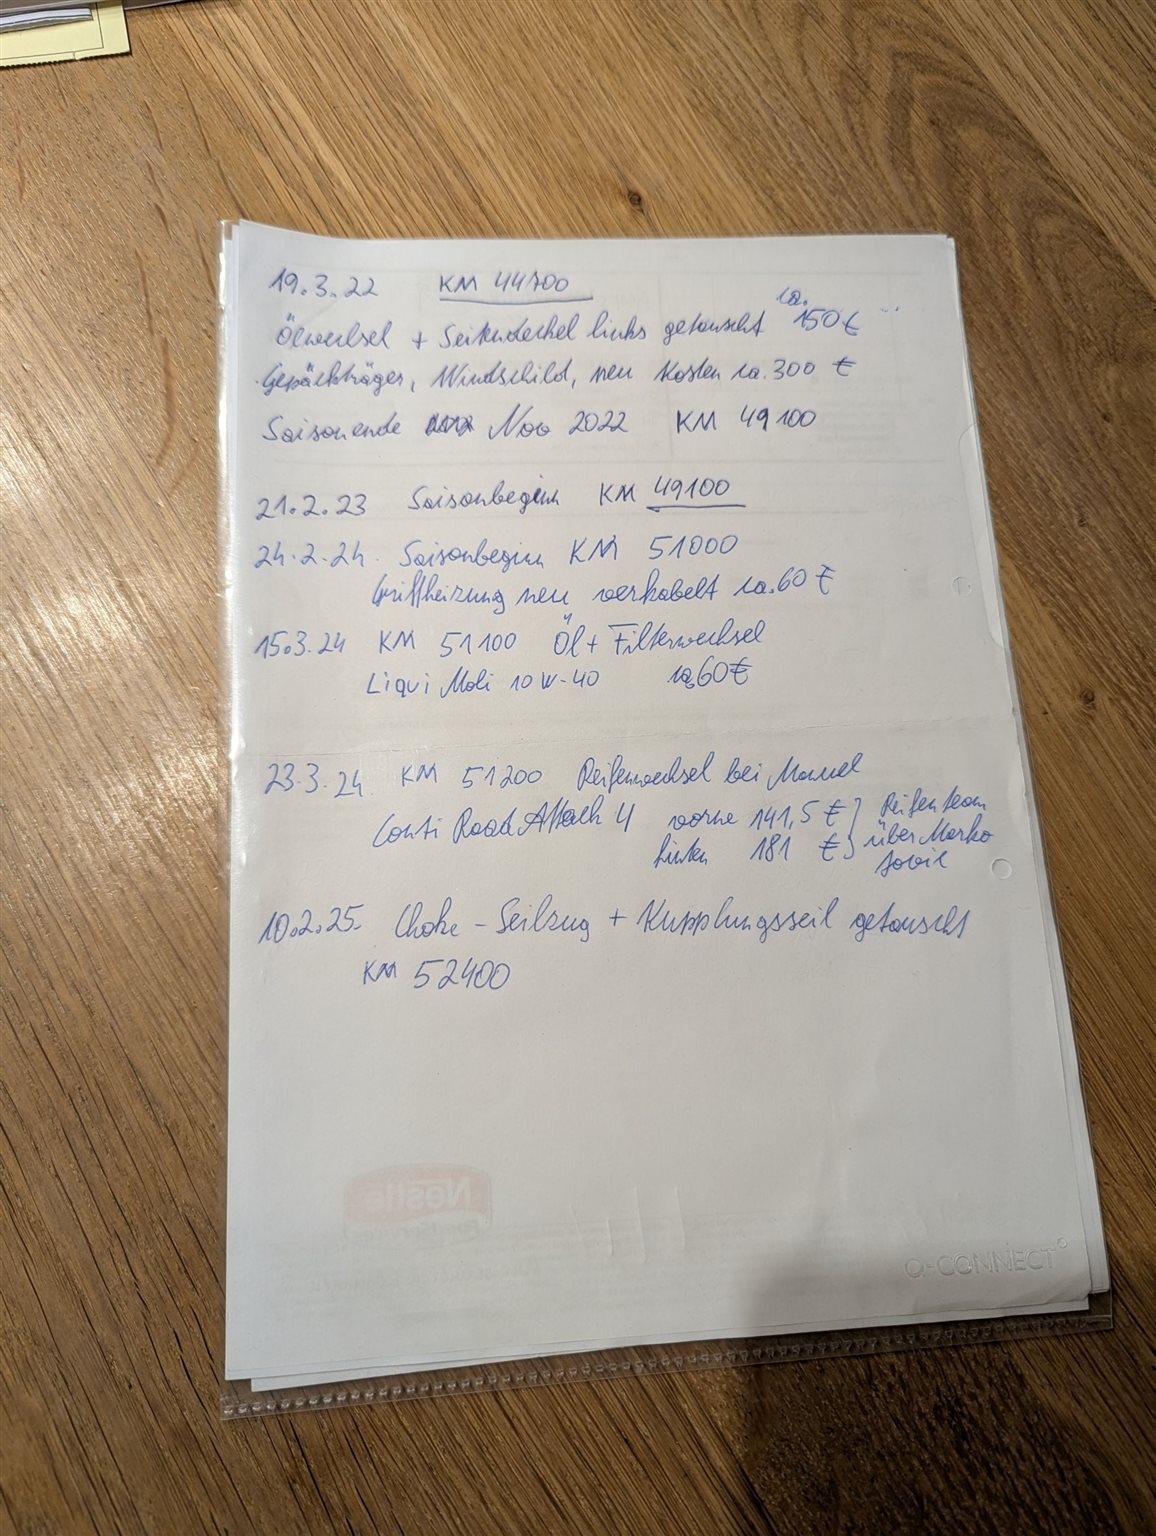 19.3.22 KM 44700
Ölwechsel + Seitendeckel links getauscht ca. 150€
Gepäckträger, Windschild, neu Kosten ca. 300 €
Saisonende Nov 2022 KM 49100
21.2.23 Saisonbeginn KM 49100
24.2.24. Saisonbeginn KM 51000
Griffheizung neu verkabelt ca. 60 €
15.3.24 KM 51100 Öl + Filterwechsel
Liqui Moli 10W-40 ca. 60€
23.3.24. KM 51200 Reifenwechsel bei Manuel
Conti Road Attack 4 vorne 141,5 € Reifenteam
hinten 181 € über Marko
10.2.25. Choke - Seilzug + Kupplungsseil getauscht
KM 52400
Nestlé
FoodServices
Q-CONNECT